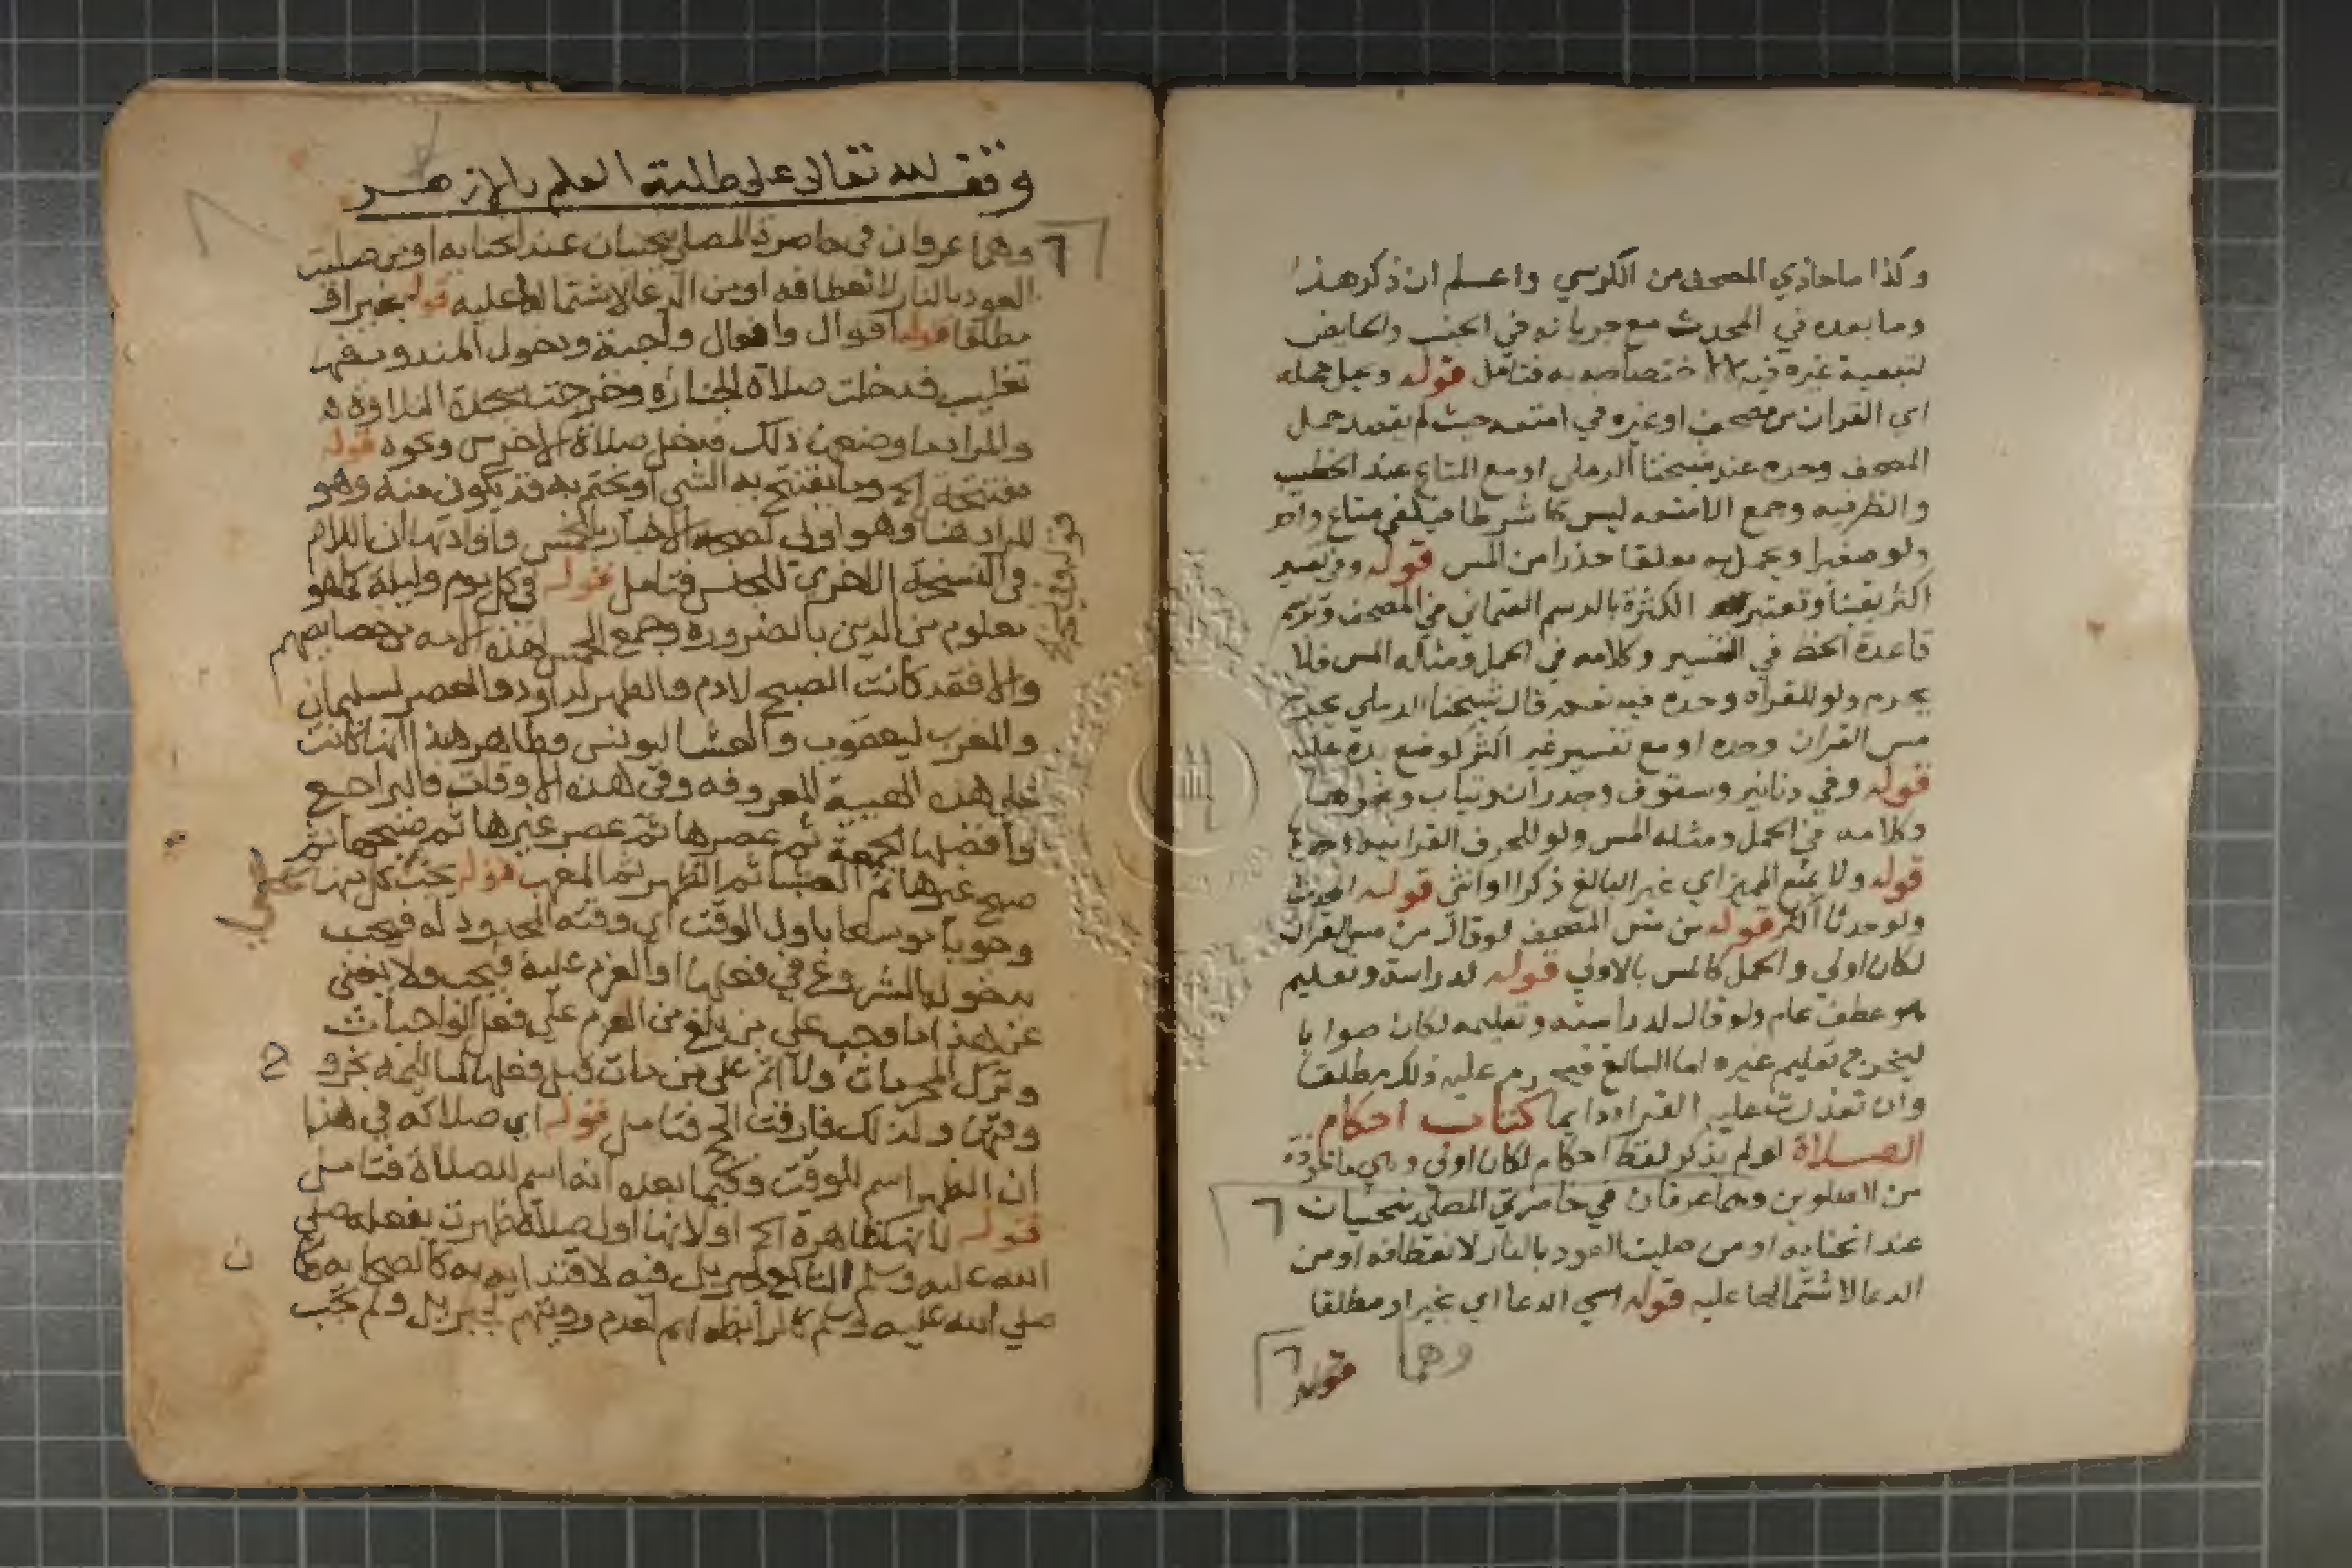 وكذا ما حاذي المصحف من الكرسي واعلم ان ذكر هذا
وما بعده في المحدث مع جريانه في الجنب والحايض
لتبعية غيره فيه لا لاختصاصه به فتامل قوله ويحل حمله
اي القران من مصحف او غيره في امتعه حيث لم يقصد حمل
المصحف وحده عند شيخنا الرملي او مع المتاع عند الخطيب
والظرفيه وجمع الامتعه ليس كل شرطا فيكفي متاع واحد
ولو صغيرا ويحمله معلقا حذرا من المس قوله وفي تفسير
اكثر يقينا وتعتبر الكثرة بالرسم العثماني في المصحف وبرسم
قاعدة الخط في التفسير وكلامه في الحمل ومثله المس فلا
يحرم ولو للقراه وحده فيه نعم قال شيخنا الرملي يحرم
مس القران وحده او مع تفسير غير اكثر كوضع يده عليه
قوله وفي دنانير وسقوف وجدران وثياب ونحوها
وكلامه في الحمل ومثله المس ولو للحرف القرانيه وحدها
قوله ولا يمنع المميز اي غير البالغ ذكرا او انثي قوله المحدث
ولو حدثا اكبر قوله من مس المصحف لو قال من مس القران
لكان اولي والحمل كالمس بالاولي قوله لدراسة وتعليم
هو عطف عام ولو قال لدراسته وتعليمه لكان صوابا
ليخرج تعليم غيره اما البالغ فيحرم عليه ذلك مطلقا
وان تعذرت عليه القراه دايما كتاب احكام
الصلاة لو لم يذكر لفظ احكام لكان اولي وهي ماخوذة
من الصلوين وهما عرقان في خاصرتي المصلي ينحنيان
عند انحنايه او من صليت العود بالنار لانعطافه او من
الدعا لاشتمالها عليه قوله اسي الدعا اي بخير او مطلقا
قوله وهما
وقف لله تعالى على طلبة العلم بالازهر
وهما عرقان في خاصرة المصلي ينحنيان عند انحنايه او من صليت
العود بالنار لانعطافه او من الدعا لاشتمالها عليه قوله بخير او
مطلقا قوله اقوال وافعال واجبة ودخول المندوب فيها
تغليب فدخلت صلاة الجنازة وخرجت سجدة التلاوة
والمراد بما وضعه ذلك فدخل صلاة الاخرس ونحوه قوله
مفتتحة الخ وما يفتتح به الشي او يختم به قد يكون منه وهو
المراد هنا وهو اولي لصحة الاخبار بالخمس وافاد بها ان اللام
في النسخة الاخري للجنس فتامل قوله في كل يوم وليلة كما هو
معلوم من الدين بالضرورة وجمع الخمس لهذه الامه من خصايصهم
والا فقد كانت الصبح لادم والظهر لداود والعصر لسليمان
والمغرب ليعقوب والعشا ليونس وظاهر هذا انها كانت
علي هذه الهيية المعروفه وفي هذه الاوقات فاليراجع
وافضلها الجمعة ثم عصرها ثم عصر غيرها ثم صبحها ثم
صبح غيرها ثم العشا ثم الظهر ثم المغرب قوله يجب كل منها
وجوبا موسعا باول الوقت اي وقته المحدود له فيجب
بدخولها الشروع في فعلها او العزم عليه فيجب ولا يغني
عن هذا ما وجب علي من بلغ من العزم علي فعل الواجبات
وترك المحرمات ولا اثم علي من مات قبل فعلها
وقتها ولذلك فارقت الحج فتامل قوله اي صلاته في هذا
ان الظهر اسم للوقت وفيما بعده انه اسم للصلاة فتامل
قوله لانها ظاهرة الخ او لانها اول صلاة ظهرت بفعله صلي
الله عليه وسلم التابع لجبريل فيه لاقتدايه به كالصحابه
صلي الله عليه وسلم كالرابطه لهم لعدم رويتهم لجبريل ولم تجب